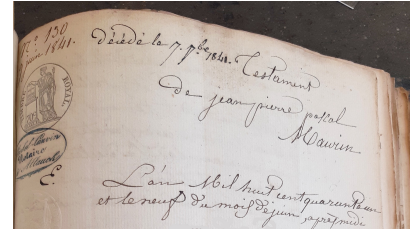 N° 130
juin 1841.
décédé le 7. 7bre 1841.
Testament
de jean pierre pascal
Mawin
ROYAL.
Notaire
E.
L'an Mil huit cent quarante un
et le neuf du mois de juin, après midi